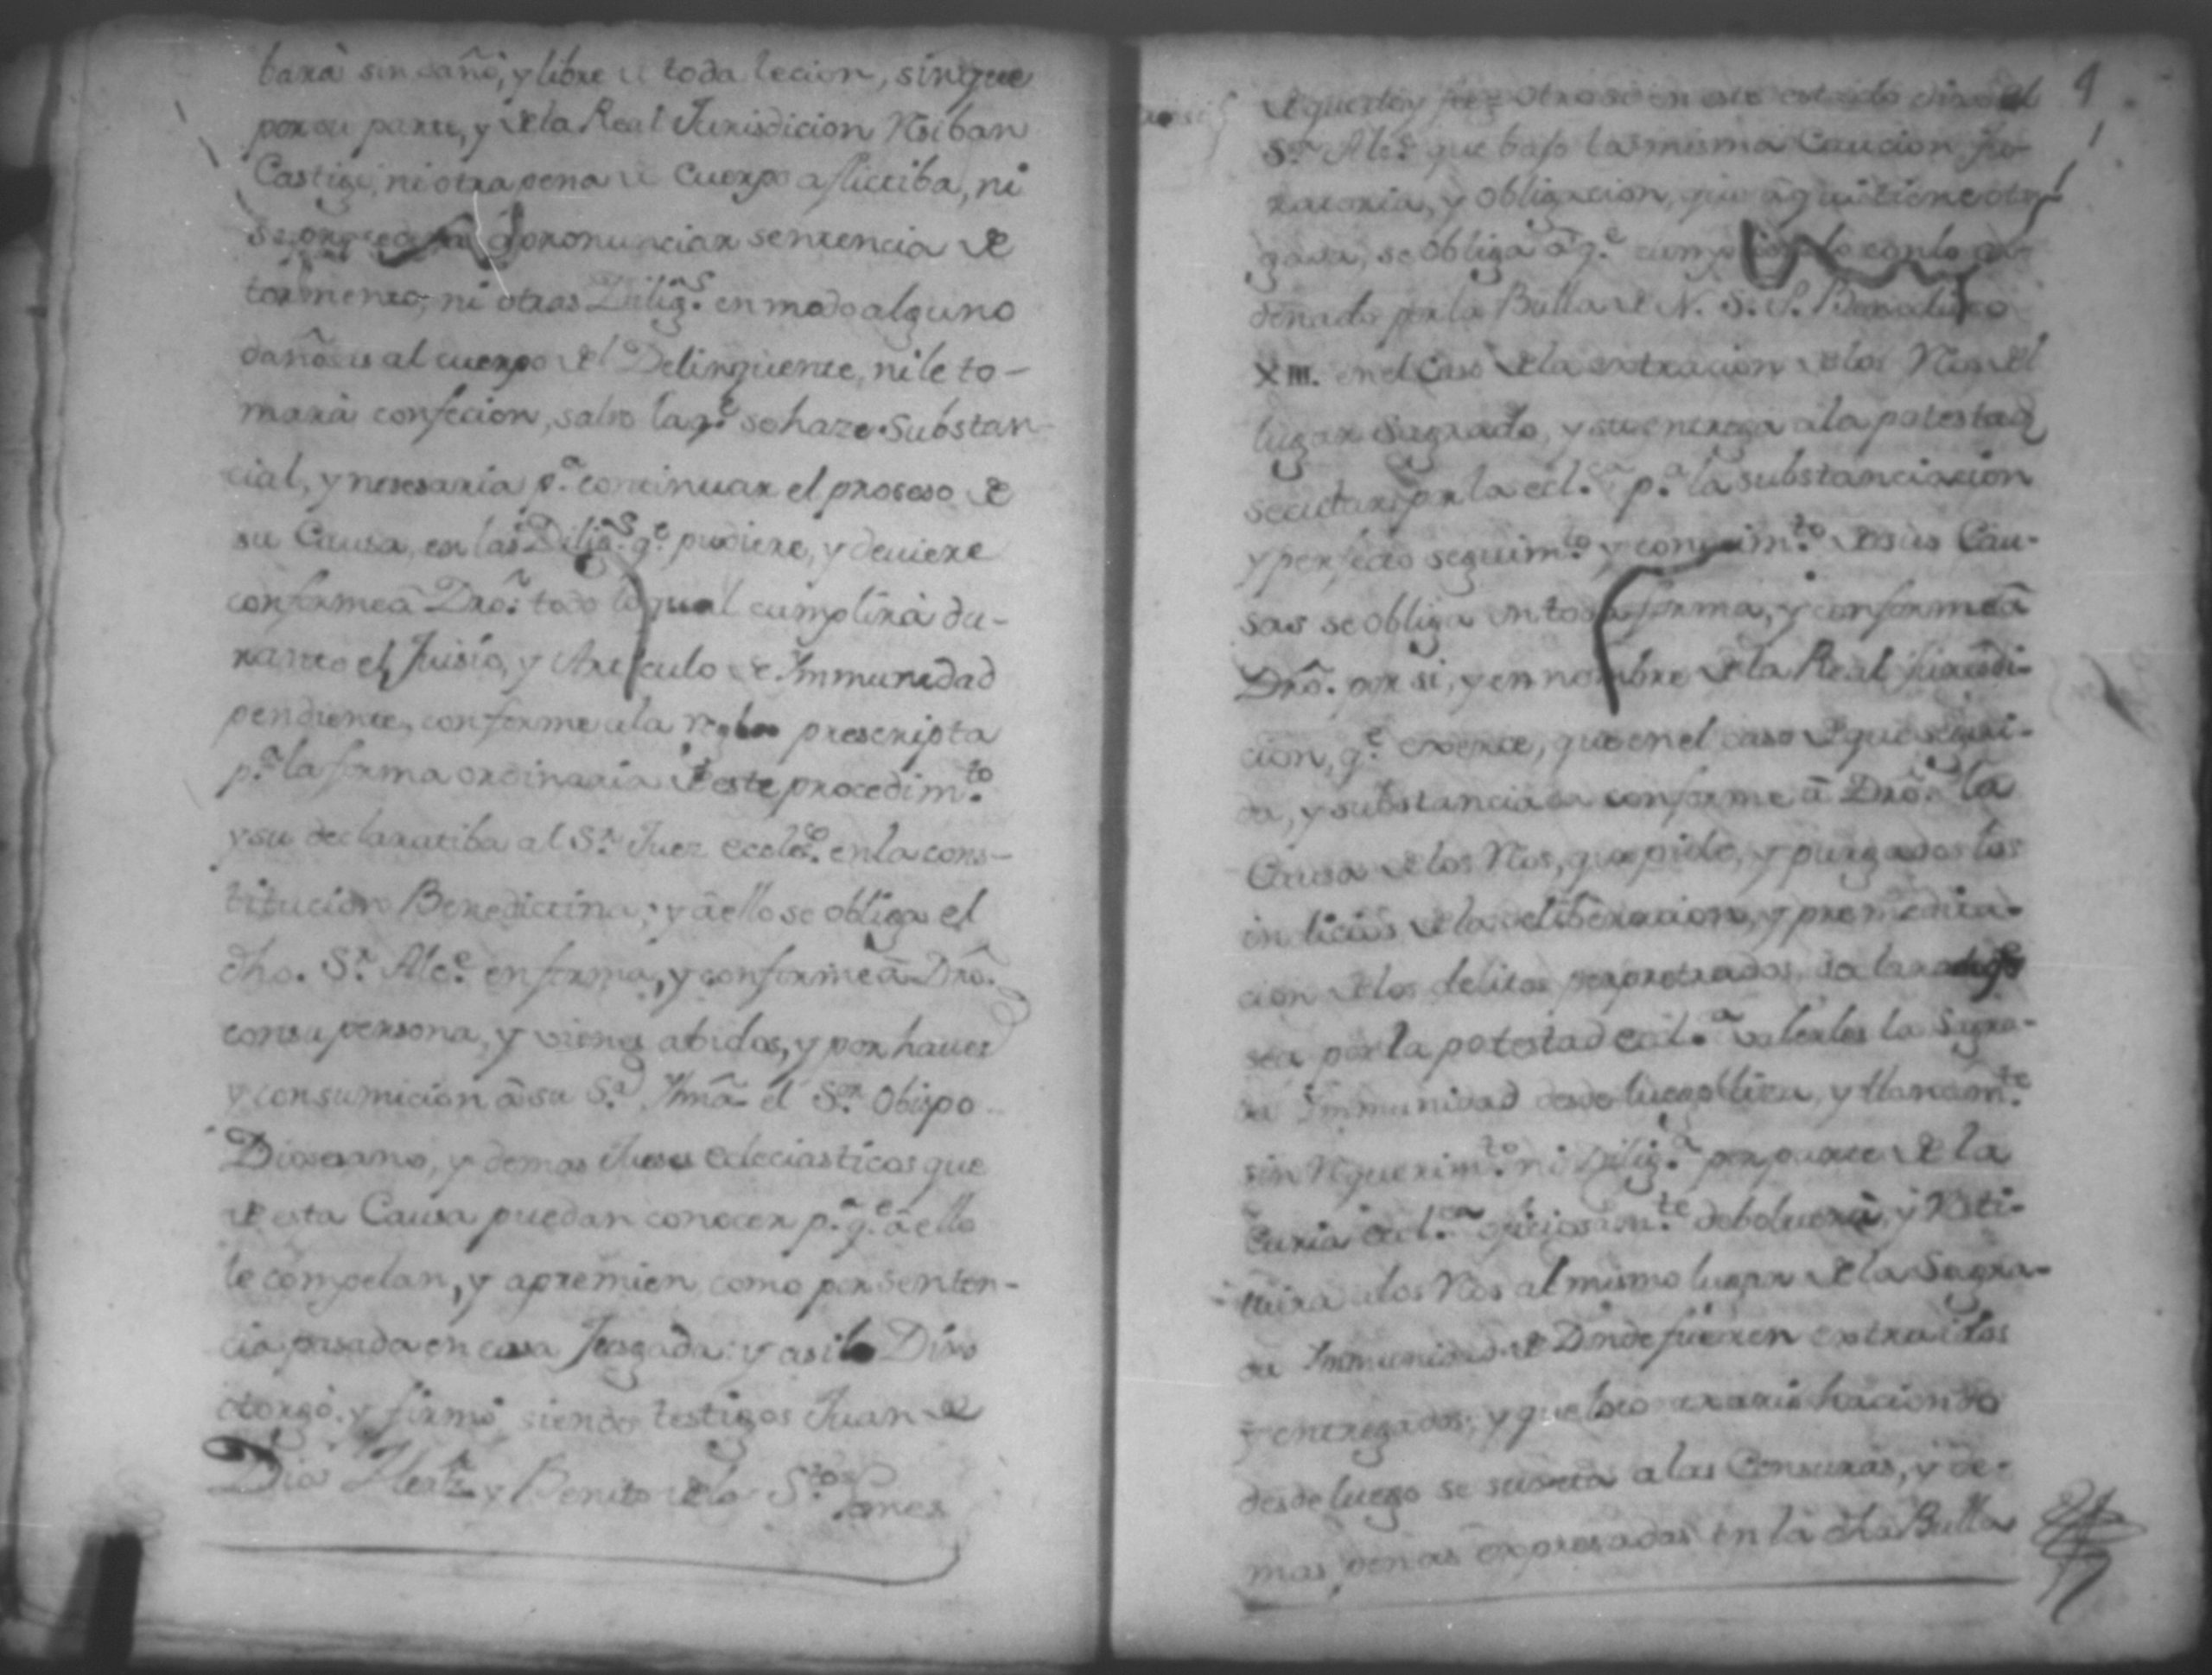 bará sin daño, y libre de toda lecion, sin que
por su parte, y de la Real Jurisdicion Resiban
Castigo, ni otra pena de cuerpo aflictiba, ni
se proceda a pronunciar sentencia de
tormento, ni otras Dilig.s en modo alguno
dañosas al cuerpo del Delinquente, ni le to-
mará confecion, salvo la q.e se haze substan-
cial, y nesesaria p.a continuar el proseso de
su Causa, en las Dilig.s q.e pudiere, y deviere
conforme â Dro. todo lo qual cumplirá du-
rante el Juisio, y Articulo de Immunidad
pendiente, conforme ala regla prescripta
p.a la forma ordinaria de este procedim.to
y su declaratiba al S.r Juez ecclec.o en la cons-
titucion Benedictina; y â ello se obliga el
dho. S.r Alc.e en forma, y conforme â Dro.
con su persona, y vienes abidos, y por haver
y consumicion â su S.a Ylmâ el S.or Obispo
Diosesano, y demas Jueses ecleciasticos que
de esta Causa puedan conocer p.a q.e â ello
le compelan, y apremien como por senten-
cia pasada en cosa Jusgada: y asi lo Dixo
otorgó, y firmó siendo testigos Juan de
Dios y Benito de los S.tos
de que doy feé otro si en este estado dixo el
S.or Alc.e que bajo la misma Caucion ju-
ratoria, y obligacion, que aqui tiene otor-
gada, se obliga â q.e cumpliendo con lo or-
denado por la Bulla de N. S. P. Benedicto
XIII. en el caso de la extracion de los Reos del
lugar Sagrado, y su entrega a la potestad
secular por la ecl.ca p.a la substanciacion
y perfecto seguim.to y conocim.to de sus Cau-
sas se obliga en toda forma, y conforme â
Dro. por si, y en nombre de la Real jurisdi-
cion, q.e exerce, que en el caso de que segui-
da, y substanciada conforme â Dro. la
Causa de los Reos, que pide, y purgados los
indicios de la deliberacion, y premedita-
cion de los delitos perpetrados, declarado
sea por la potestad ecl.ca valerles la Sagra-
da Immunidad desde luego liza, y llanam.te
sin Requerim.to ni Dilig.a por parte de la
Curia ecl.ca oficiosam.te debolverá, y Resti-
tuira a los Reos al mismo lugar de la Sagra-
da Immunidad de Donde fueren extraidos
y entregados; y que lo contrario haciendo
desde luego se sujeta a las Censuras, y de-
mas penas expresadas en la dha Bulla